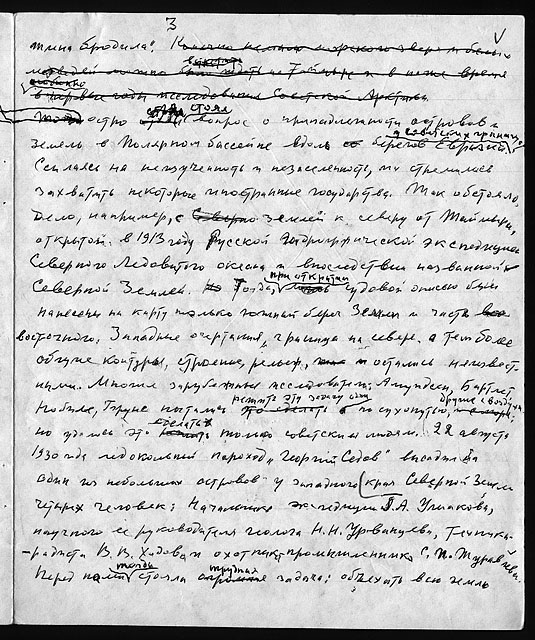 3
тина бродила".
остро стоял вопрос о принадлежности островов и
земель в Полярном бассейне вдоль берегов Евразии.
Ссылаясь на неизученность и незаселенность, их стремились
захватить некоторые иностранные государства. Так обстояло
дело, например, с Землей к северу от Таймыра,
открытой в 1913 году Русской Гидрографической экспедицией
Северного Ледовитого океана и впоследствии названной
Северной Землей. Тогда, при открытии судовой описью были
нанесены на карту только южный берег Земли и часть
восточного. Западные очертания, граница на севере, а тем более
общие контуры, строение, рельеф, остались неизвест-
ными. Многие зарубежные исследователи: Амундсен, Бартлет,
Нобиле, пытались решить эту задачу
но удалось это сделать только советским людям. 22 августа
1930 года ледокольный пароход "Георгий Седов" высадил на
один из небольших островов у западного края Северной Земли
четырех человек: Начальника экспедиции Г.А. Ушакова,
научного ее руководителя геолога Н.Н. Урванцева, техника-
-радиста В.В. Ходова и охотника-промышленника С.П. Журавлева.
Перед ними тогда стояла трудная задача: объехать всю землю